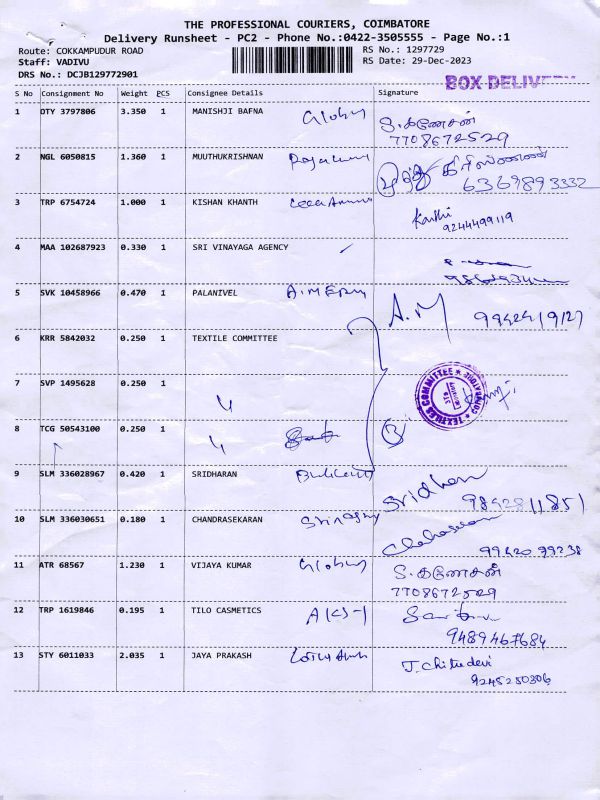 THE PROFESSIONAL COURIERS, COIMBATORE
Delivery Runsheet - PC2 - Phone No.:0422-3505555 - Page No.:1
Route: COKKAMPUDUR ROAD
Staff: VADIVU
DRS No.: DCJB129772901
RS No.: 1297729
RS Date: 29-Dec-2023
BOX DELIVERY
S No Consignment No Weight PCS Consignee Details Signature
1 DTY 3797806 3.350 1 MANISHJI BAFNA
S. கணேசன்
7708672529
2 NGL 6050815 1.360 1 MUUTHUKRISHNAN
6369893332
3 TRP 6754724 1.000 1 KISHAN KHANTH
Karthi
9244499119
4 MAA 102687923 0.330 1 SRI VINAYAGA AGENCY
5 SVK 10458966 0.470 1 PALANIVEL
A.M
6 KRR 5842032 0.250 1 TEXTILE COMMITTEE
7 SVP 1495628 0.250 1
TEXTILES COMMITTEE COIMBATORE
8 TCG 50543100 0.250 1
9 SLM 336028967 0.420 1 SRIDHARAN
Sridharan
10 SLM 336030651 0.180 1 CHANDRASEKARAN
11 ATR 68567 1.230 1 VIJAYA KUMAR
S. கணேசன்
7708672529
12 TRP 1619846 0.195 1 TILO CASMETICS
9489467684
13 STY 6011033 2.035 1 JAYA PRAKASH
J. Chitudevi
9245250306